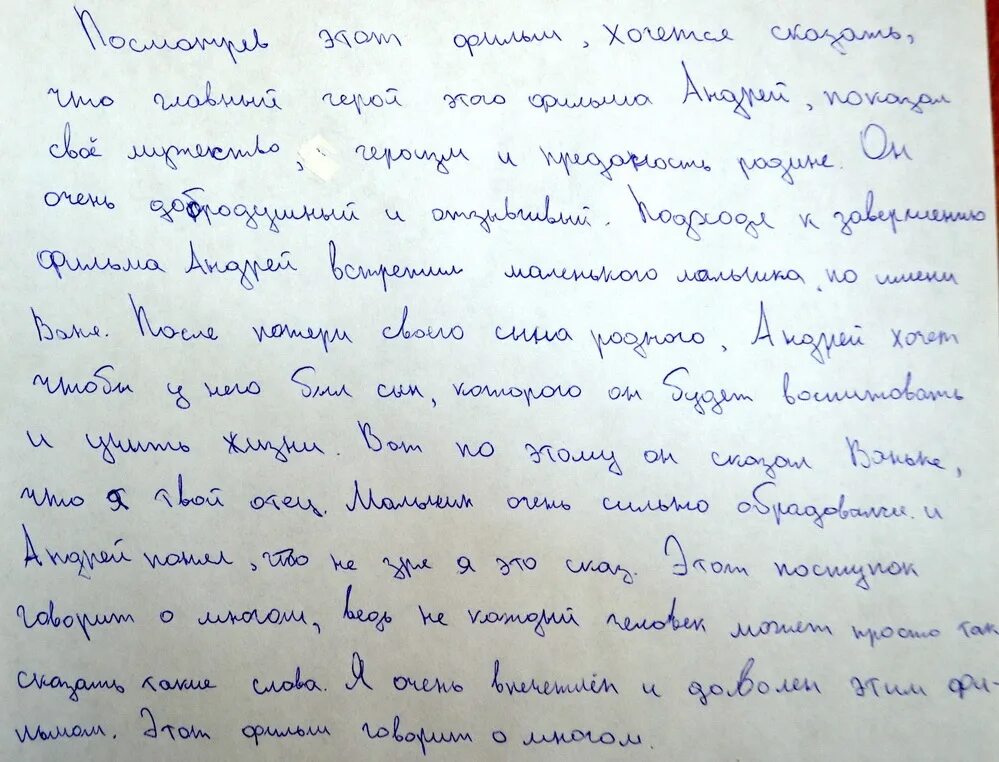 Посмотрев этот фильм, хочется сказать,
что главный герой этого фильма Андрей, показал
своё мужекство, героизм и преданость родине. Он
очень добродушный и отзывчивый. Подходя к завершению
фильма Андрей встретил маленького малышка, по имени
Ваня. После потери своего сына родного, Андрей хочет
чтобы у него был сын, которого он будет воспитовать
и учить жизни. Вот по этому он сказал Ваньке,
что я твой отец. Мальчик очень сильно обрадовался и
Андрей понял, что не зря я это сказ. Этот поступок
говорит о многом, ведь не каждый человек может просто так
сказать такие слова. Я очень впечетлён и доволен этим фи-
льмом. Этот фильм говорит о многом.